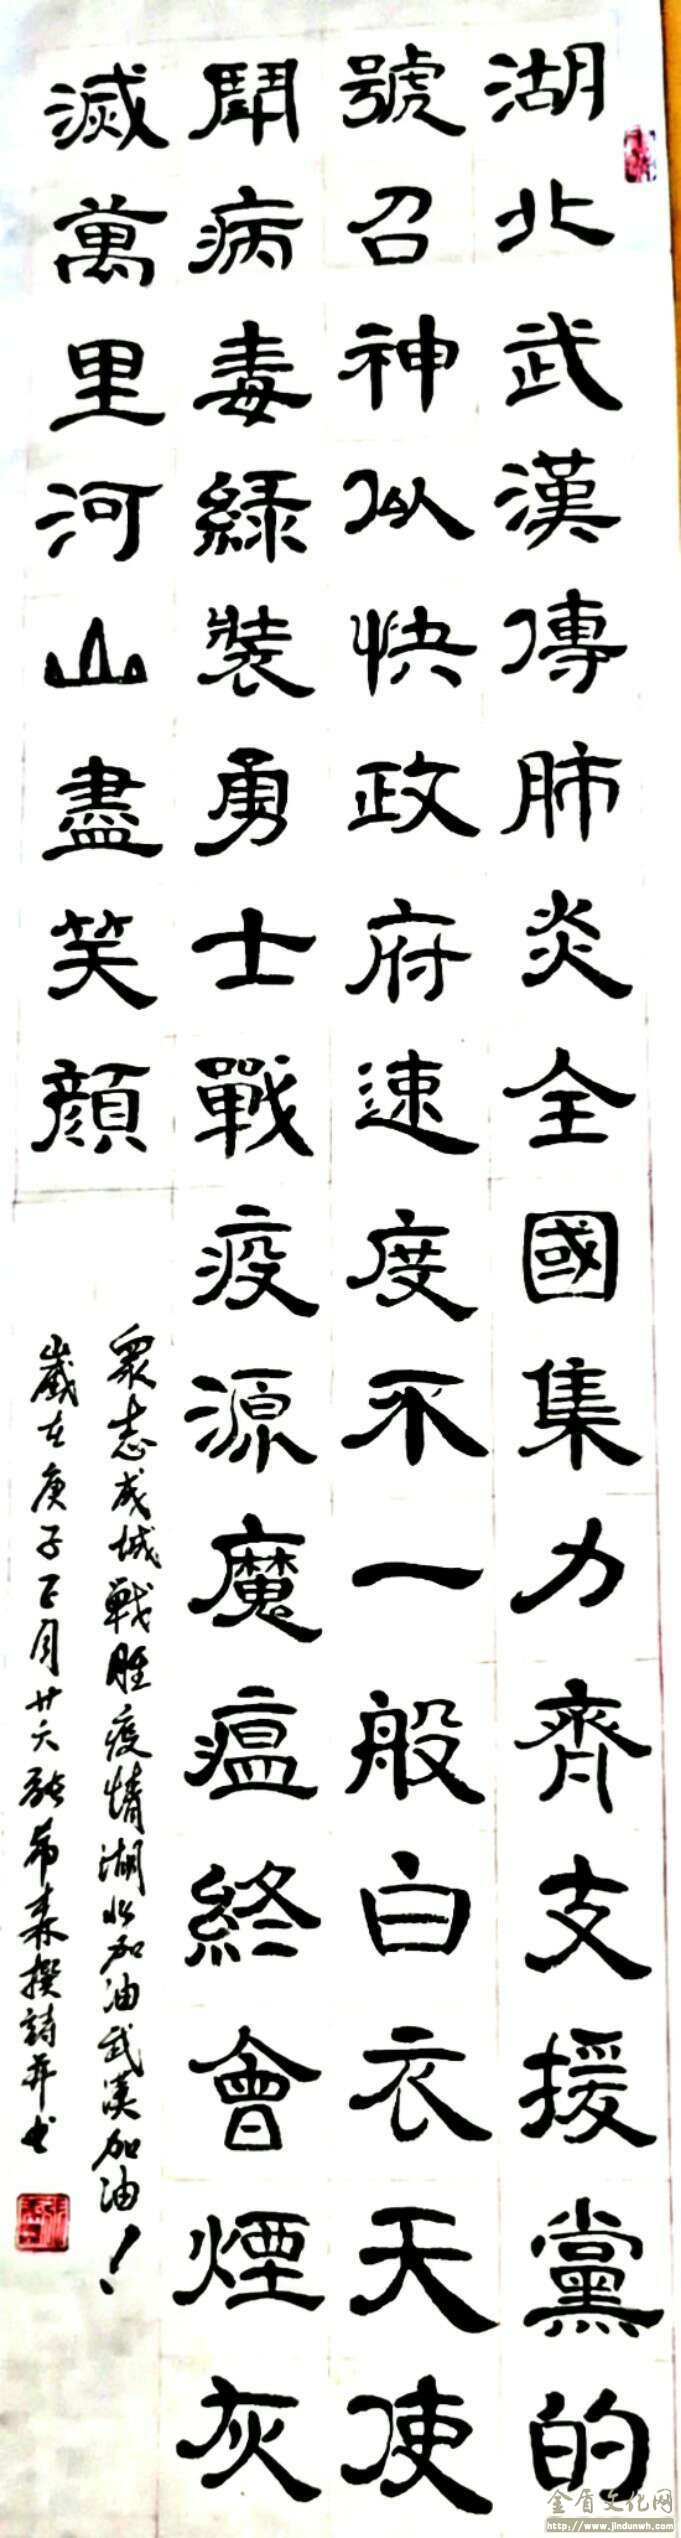 湖北武漢傳肺炎全國集力齊支援黨的
號召神似快政府速度不一般白衣天使
鬪病毒綠裝勇士戰疫源魔瘟終會煙灰
滅萬里河山盡笑顔
衆志成城戰胜疫情湖北加油武漢加油！
歲在庚子正月廿六 希森撰詩并书
金盾文化网
http://www.jindunwh.com